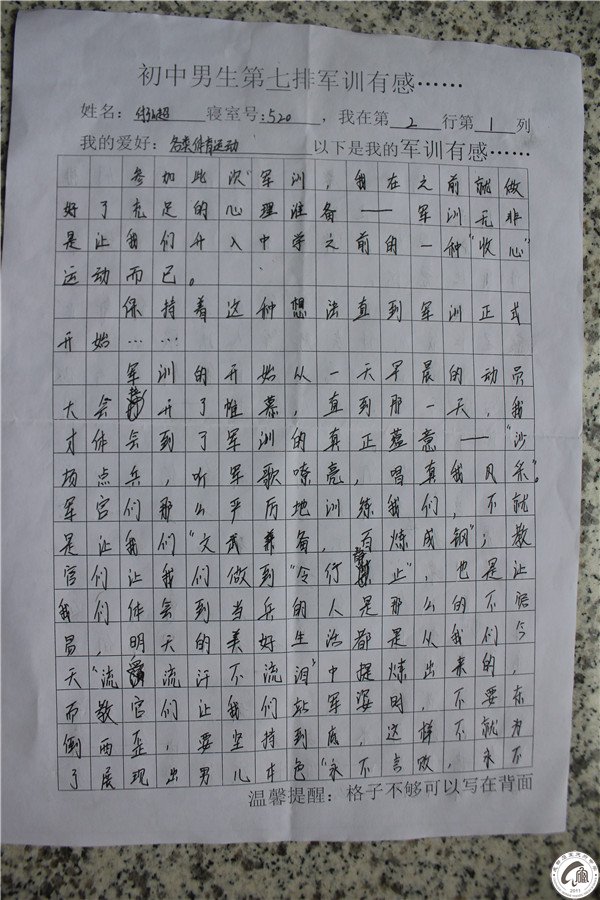 初中男生第七排军训有感……
姓名: 超 寝室号:520 ,我在第 2 行第 1 列
我的爱好: 各类体育运动 以下是我的军训有感……
参加此次军训,我在之前就做
好了充足的心理准备——军训无非
是让我们升入中学之前的一种“收心”
运动而已。
保持着这种想法直到军训正式
开始……
军训的开始从一天早晨的动员
大会 开了帷幕,直到那一天,我
才体会到了军训的真正蕴意——“沙
场点兵,听军歌嘹亮,唱真我风采”。
军官们那么严厉地训练我们,不就
是让我们“文武兼备,百炼成钢”;教
官们让我们做到“令行禁止”,也是让
我们体会到当兵的人是那么的不容
易,明天的美好生活都是从我们今
天“流 流汗不流泪”中提炼出来的,
而教官们让我们站军姿时,不要东
倒西歪,要坚持到底,这样不就为
了展现出男儿本色“永不言败,永不
温馨提醒:格子不够可以写在背面
2011